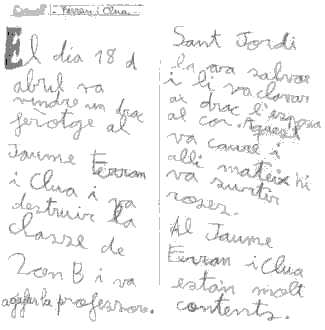 Ferran i Clua
El dia 18 d
abril va
vindre un drac
ferotge al
Jaume Ferran
i Clua i va
destruir la
classe de
2on B i va
agafar la professora.
Sant Jordi
la va salvar
i li va clavar
al drac l'espasa
al cor. Aquest
va caure i
allí mateix hi
va surtir
roses.
Al Jaume
Ferran i Clua
estan molt
contents.